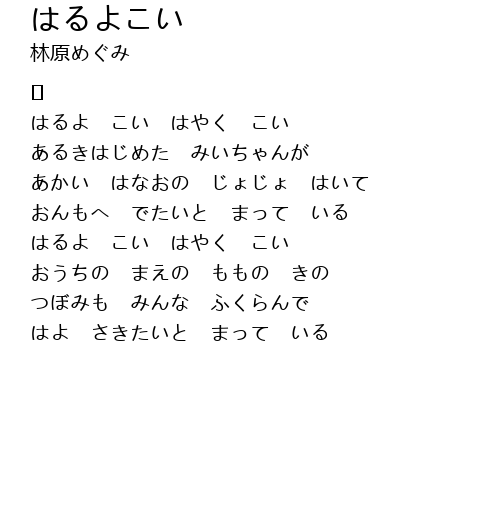 はるよこい
林原めぐみ
はるよ　こい　はやく　こい
あるきはじめた　みいちゃんが
あかい　はなおの　じょじょ　はいて
おんもへ　でたいと　まって　いる
はるよ　こい　はやく　こい
おうちの　まえの　ももの　きの
つぼみも　みんな　ふくらんで
はよ　さきたいと　まって　いる